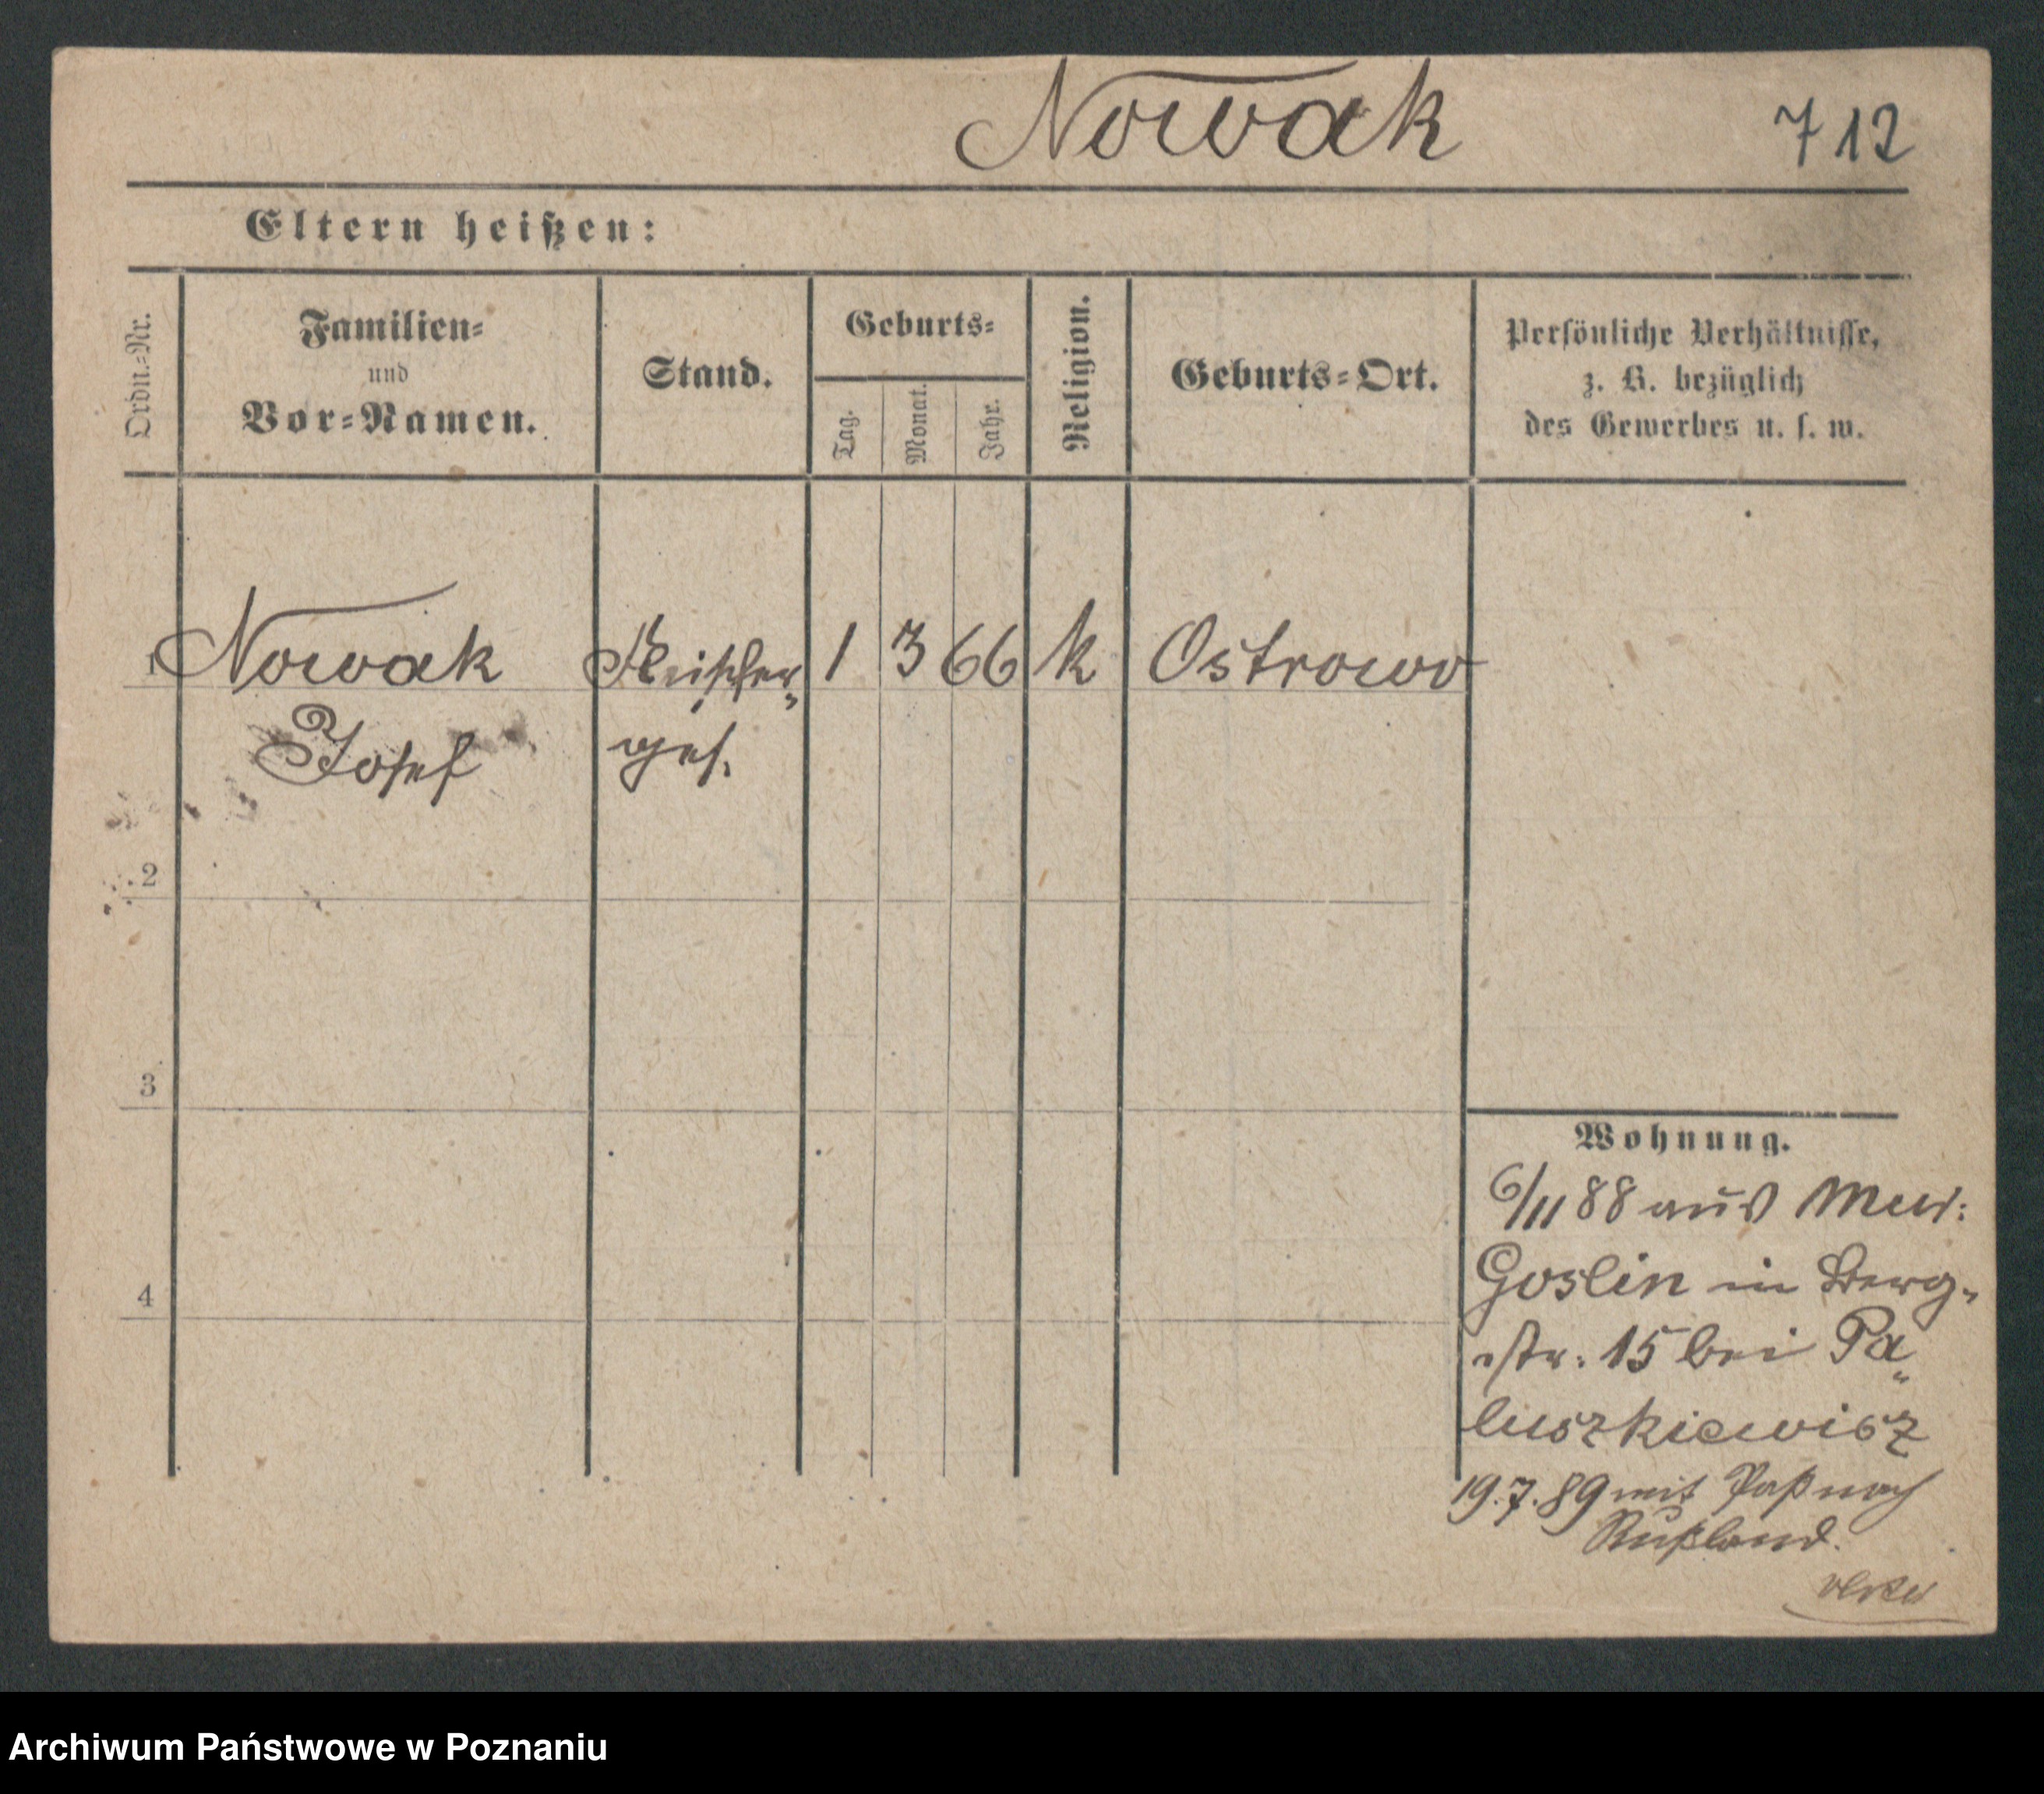 Nowak 712
Eltern heißen:
Ordn.-Nr.
Familien-
und
Vor-Namen.
Stand.
Geburts-
Tag.
Monat.
Jahr.
Religion.
Geburts-Ort.
Persönliche Verhältnisse,
z. B. bezüglich
des Gewerbes u. s. w.
1 Nowak Fleischer- 1 3 66 k Ostrowo
Josef ges.
2
3
4
Wohnung.
6/11 88 aus Mur:
Goslin in Berg-
str. 15 bei Pa-
luszkiewicz
19.7.89 mit Paß nach
Rußland.
Archiwum Państwowe w Poznaniu